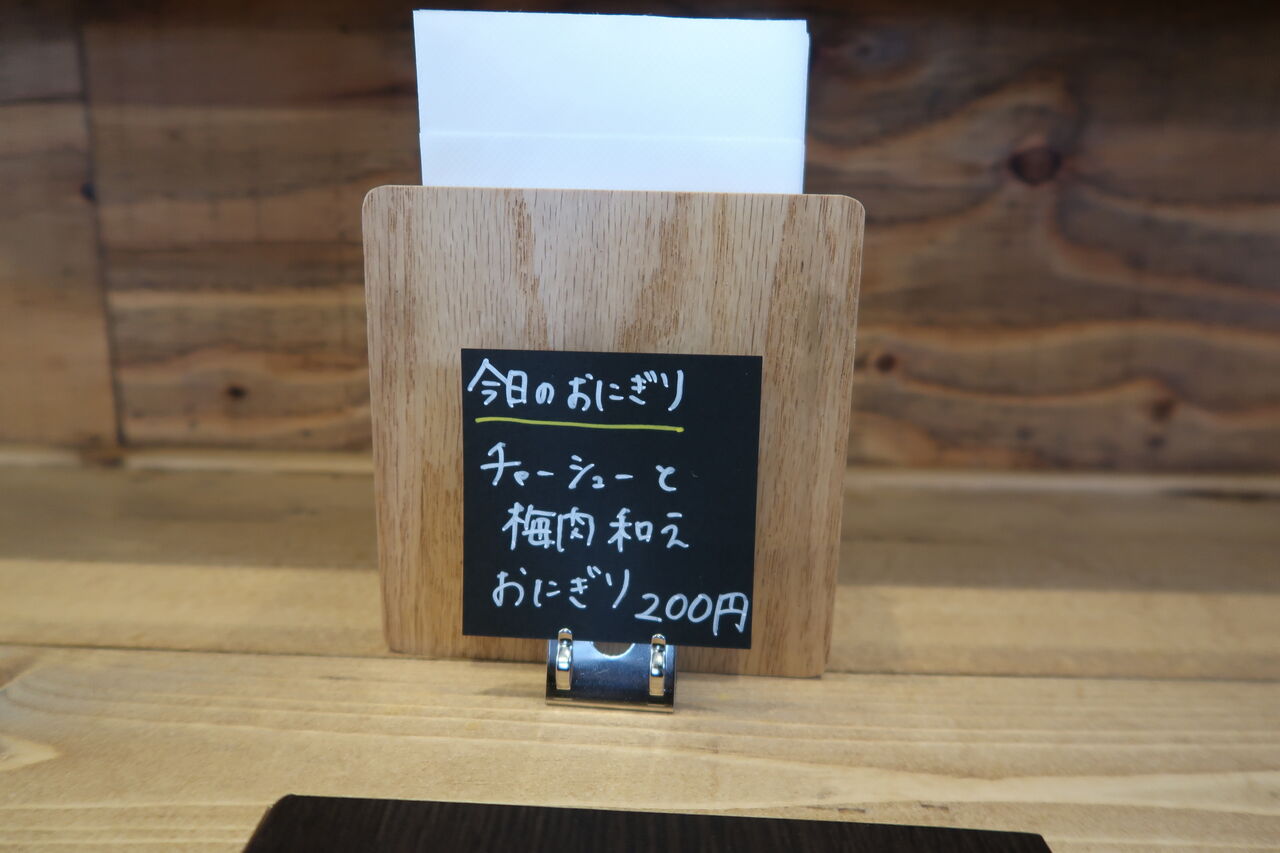 今日のおにぎり
チャーシューと
梅肉和え
おにぎり 200円